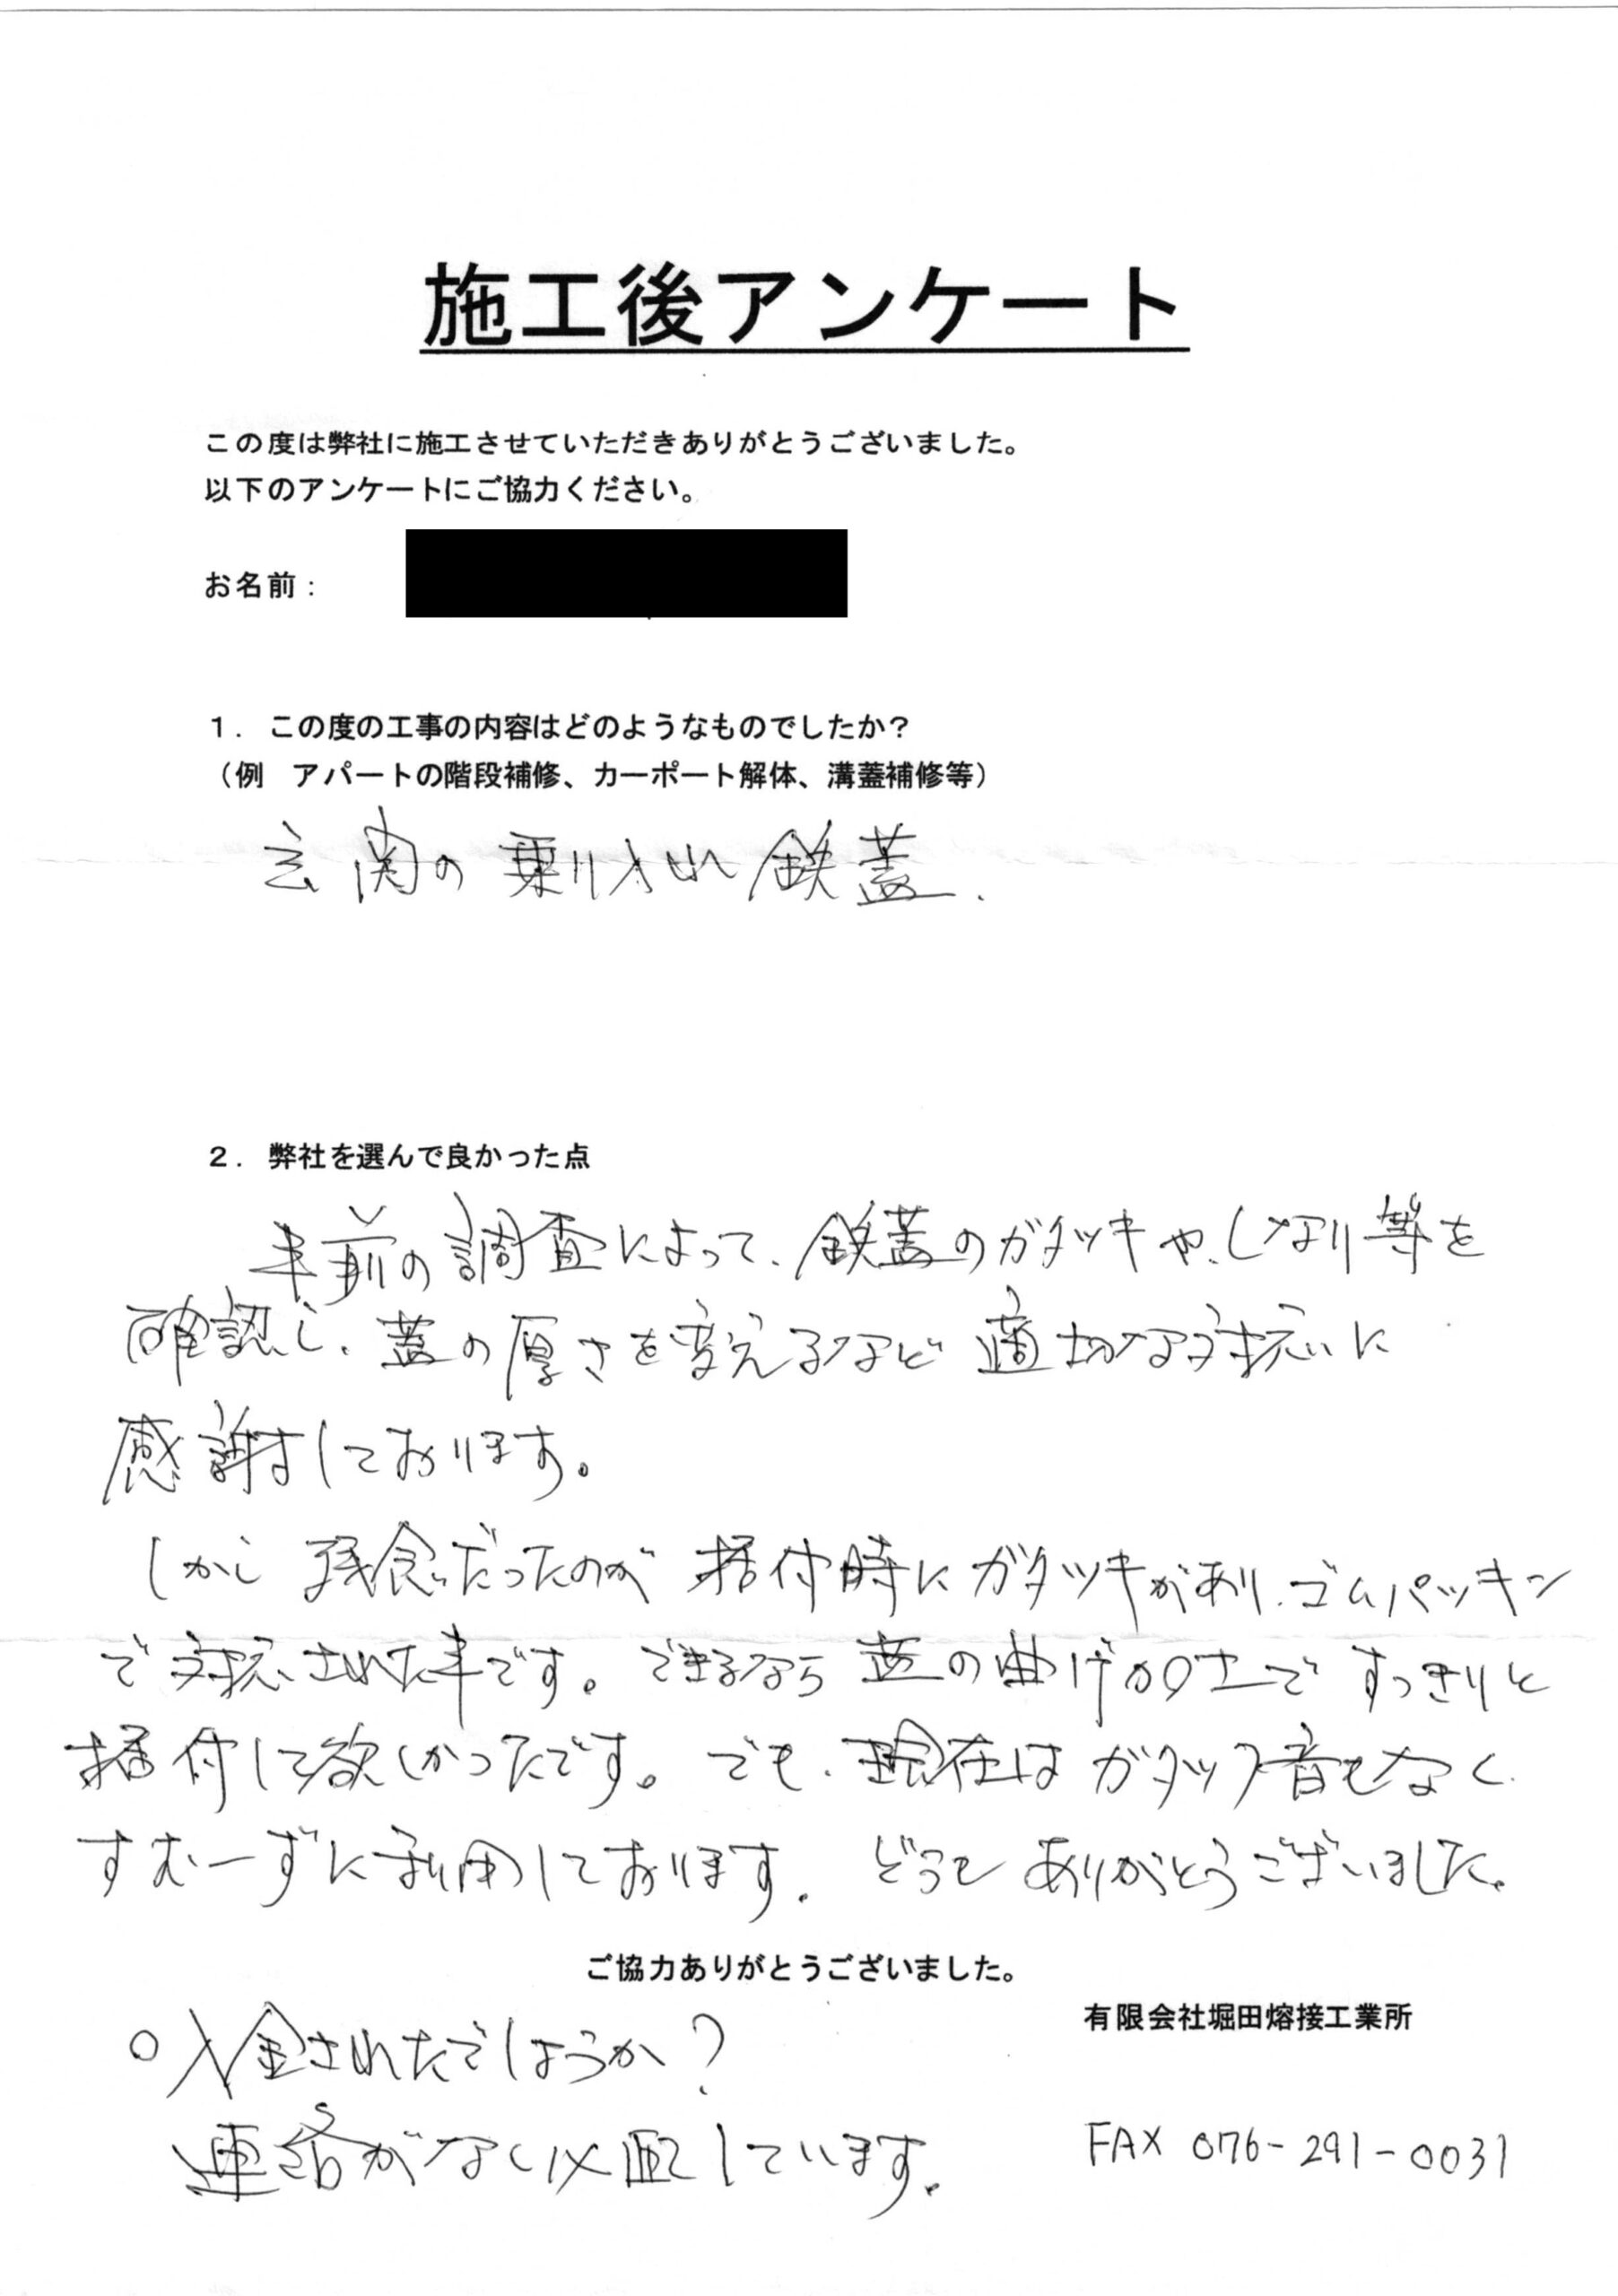 施工後アンケート
この度は弊社に施工させていただきありがとうございました。
以下のアンケートにご協力ください。
お名前：
１．この度の工事の内容はどのようなものでしたか？
（例　アパートの階段補修、カーポート解体、溝蓋補修等）
玄関の乗り入れ鉄蓋.
２．弊社を選んで良かった点
事前の調査によって、鉄蓋のガタツキや、しなり等を
確認し、蓋の厚さを変えるなど適切な対応に
感謝しております。
しかし残念だったのが据付時にガタツキがあり、ゴムパッキン
で対応された事です。できるなら蓋の曲げ加工ですっきりと
据付して欲しかったです。でも、現在はガタツク音もなく
すむーずに利用しております。どうも ありがとうございました。
ご協力ありがとうございました。
有限会社堀田熔接工業所
○入金されたでしょうか？
連絡がない心配しています。
FAX 076-291-0031